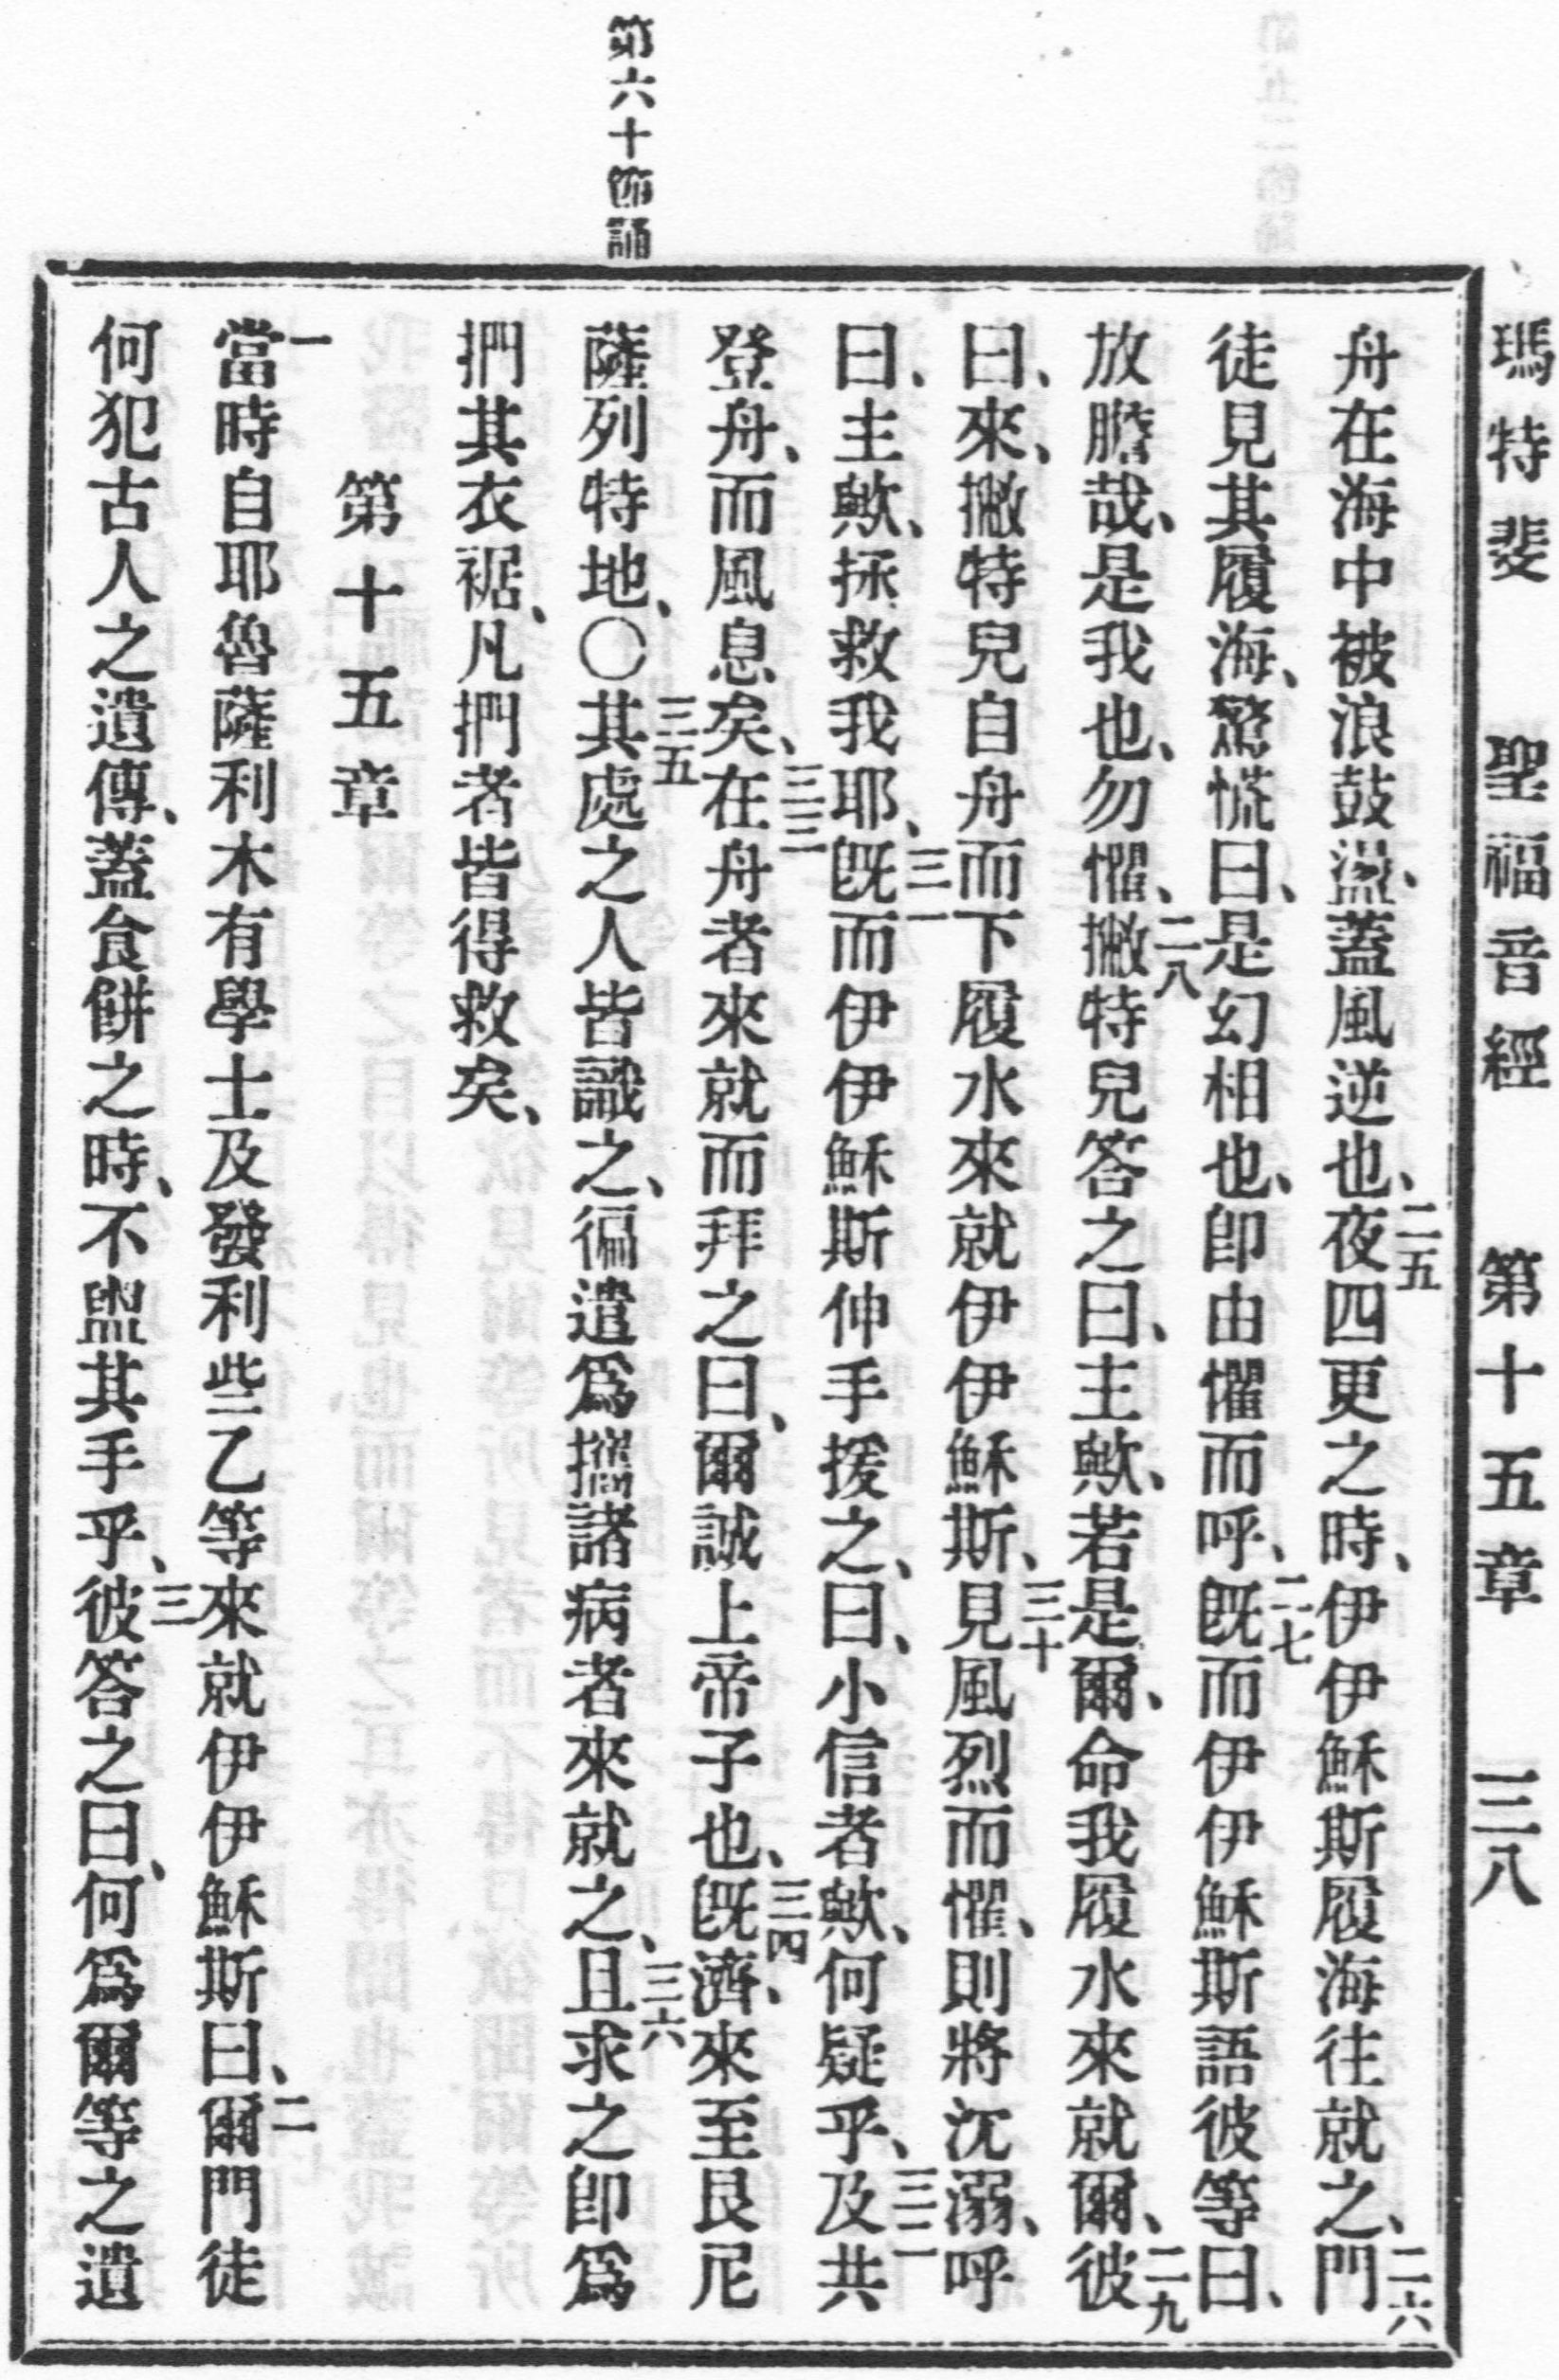 瑪特斐 聖福音經 第十五章 三八
舟在海中被浪鼓盪、蓋風逆也、二五夜四更之時、伊伊穌斯履海往就之、二六門
徒見其履海、驚慌曰、是幻相也、卽由懼而呼、二七旣而伊伊穌斯語彼等曰、
放膽哉、是我也、勿懼、二八撇特兒答之曰、主歟、若是爾、命我履水來就爾、二九彼
曰、來、撇特兒自舟而下履水來就伊伊穌斯、三十見風烈而懼、則將沉溺、呼
曰、主歟、拯救我耶、三一旣而伊伊穌斯伸手援之、曰、小信者歟、何疑乎、三二及共
登舟、而風息矣、三三在舟者來就而拜之曰、爾誠上帝子也、三四旣濟、來至艮尼
薩列特地、〇三五其處之人皆識之、徧遣爲攜諸病者來就之、三六且求之卽爲
捫其衣裾、凡捫者皆得救矣、
第十五章
一當時自耶魯薩利木有學士及發利些乙等來就伊伊穌斯曰、二爾門徒
何犯古人之遺傳、蓋食餅之時、不盥其手乎、三彼答之曰、何爲爾等之遺
第六十節誦